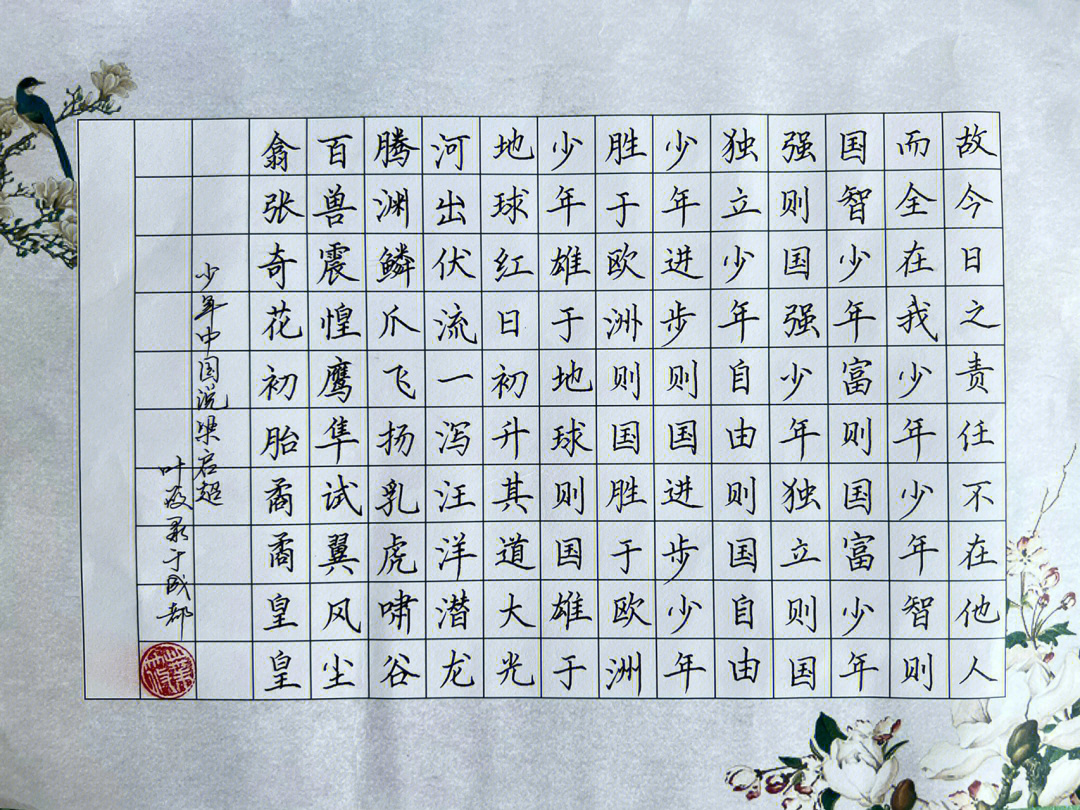 故今日之责任不在他人
而全在我少年少年智则
国智少年富则国富少年
强则国强少年独立则国
独立少年自由则国自由
少年进步则国进步少年
胜于欧洲则国胜于欧洲
少年雄于地球则国雄于
地球红日初升其道大光
河出伏流一泻汪洋潜龙
腾渊鳞爪飞扬乳虎啸谷
百兽震惶鹰隼试翼风尘
翕张奇花初胎矞矞皇皇
少年中国说梁启超
叶录于成都